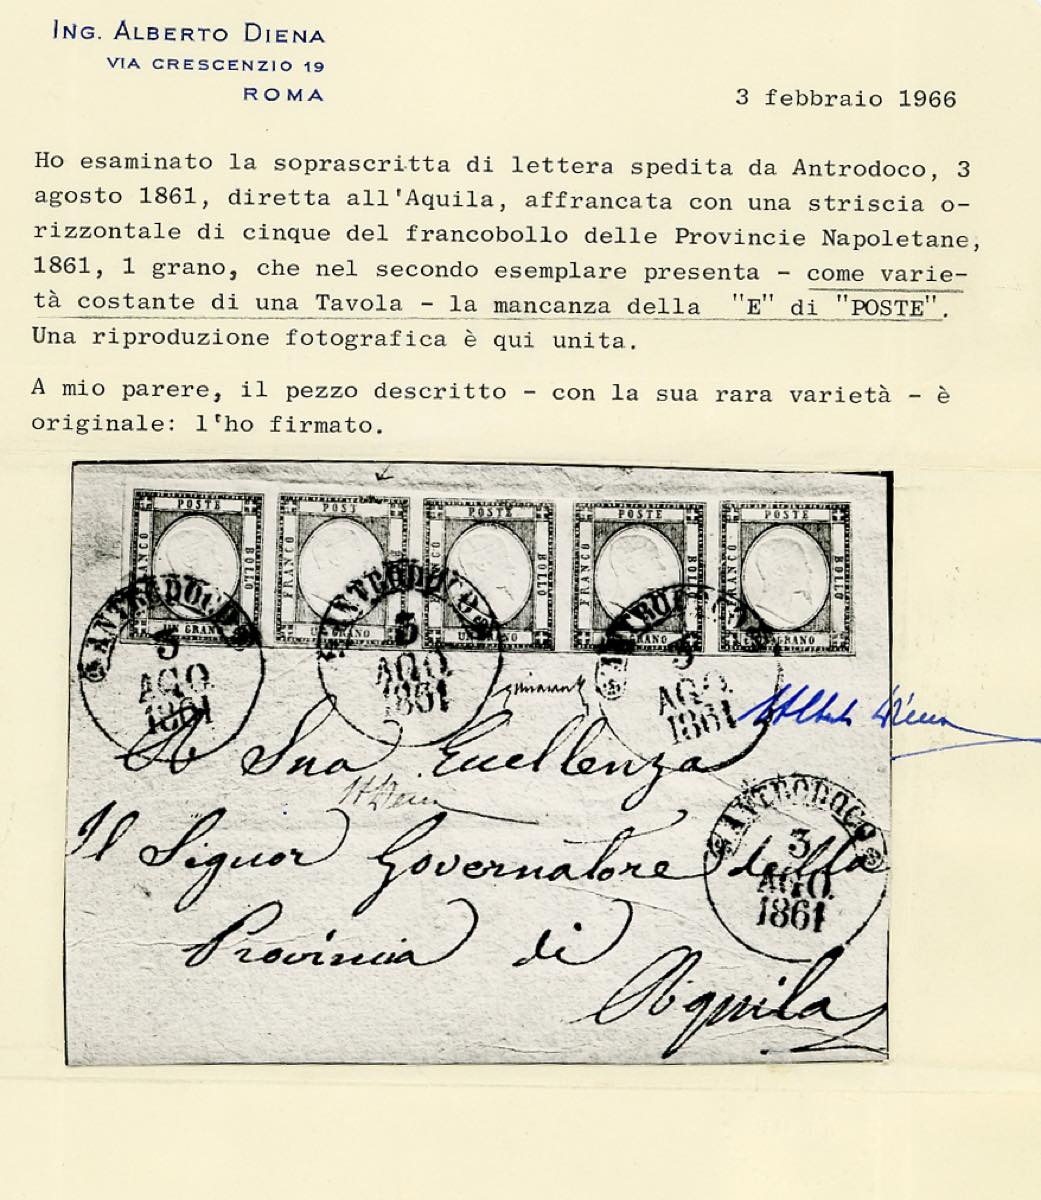 ING. ALBERTO DIENA
VIA CRESCENZIO 19
ROMA
3 febbraio 1966
Ho esaminato la soprascritta di lettera spedita da Antrodoco, 3
agosto 1861, diretta all'Aquila, affrancata con una striscia o-
rizzontale di cinque del francobollo delle Provincie Napoletane,
1861, 1 grano, che nel secondo esemplare presenta - come varie-
tà costante di una Tavola - la mancanza della "E" di "POSTE".
Una riproduzione fotografica è qui unita.
A mio parere, il pezzo descritto - con la sua rara varietà - è
originale: l'ho firmato.
POSTE POST POSTE POSTE POSTE
FRANCO BOLLO FRANCO FRANCO BOLLO FRANCO FRANCO BOLLO
UN GRANO UN GRANO UN GRANO GRANO GRANO
ANTRODOCO ANTRODOCO ANTRODOCO
3 3 3
AGO. AGO. AGO.
1861 1861 1861
Alberto Diena
A Sua Eccellenza
Diena
Il Signor Governatore della
ANTRODOCO
3
AGO.
1861
Provincia di
Aquila